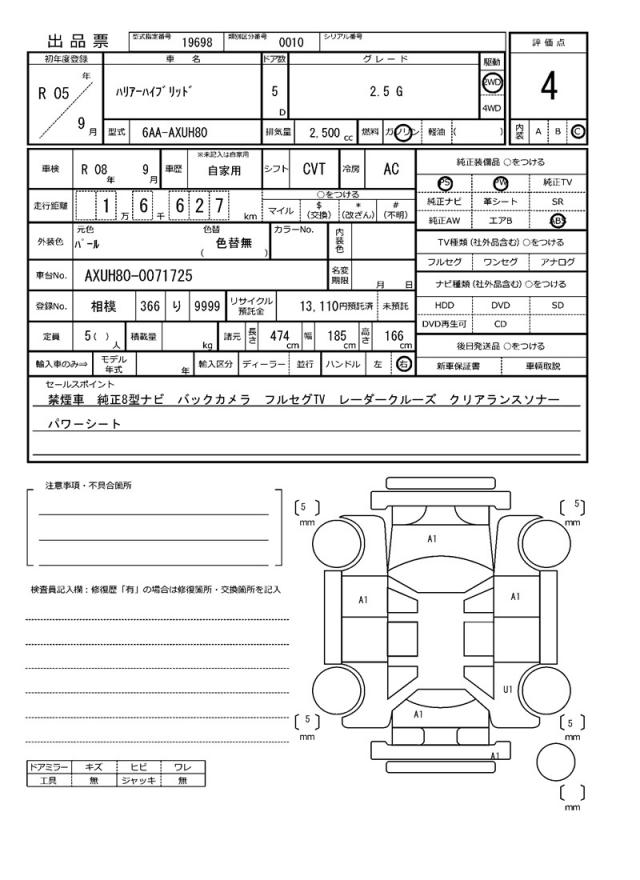 出品票
型式指定番号 19698 類別区分番号 0010 シリアル番号
初年度登録 車 名 ドア数 グレード 駆動 評価点
R 05 年 9 月 ハリアーハイブリッド 5 D 2.5 G 2WD 4WD 4
型式 6AA-AXUH80 排気量 2,500 cc 燃料 ガソリン 軽油 ( ) 内装 A B C
車検 R 08 年 9 月 車歴 ※未記入は自家用 自家用 シフト CVT 冷房 AC
走行距離 1 万 6 千 6 2 7 km ○をつける マイル $ (交換) * (改ざん) # (不明)
外装色 元色 パール 色替 色替無 ( ) カラーNo. 内装色
車台No. AXUH80-0071725 名変期限 月 日
登録No. 相模 366 り 9999 リサイクル預託金 13,110円預託済 未預託
定員 5( ) 人 積載量 kg 諸元 長さ 474 cm 幅 185 cm 高さ 166 cm
輸入車のみ⇒ モデル年式 年 輸入区分 ディーラー 並行 ハンドル 左 右
純正装備品 ○をつける
PS PW 純正TV
純正ナビ 革シート SR
純正AW エアB ABS
TV種類 (社外品含む) ○をつける
フルセグ ワンセグ アナログ
ナビ種類 (社外品含む) ○をつける
HDD DVD SD
DVD再生可 CD
後日発送品 ○をつける
新車保証書 車輌取説
セールスポイント
禁煙車 純正8型ナビ バックカメラ フルセグTV レーダークルーズ クリアランスソナー
パワーシート
注意事項・不具合箇所
検査員記入欄：修復歴「有」の場合は修復箇所・交換箇所を記入
ドアミラー キズ ヒビ ワレ
工具 無 ジャッキ 無
[ 5 ] mm
[ 5 ] mm
A1
A1
A1
U1
A1
A1
[ 5 ] mm
[ 5 ] mm
[ ] mm